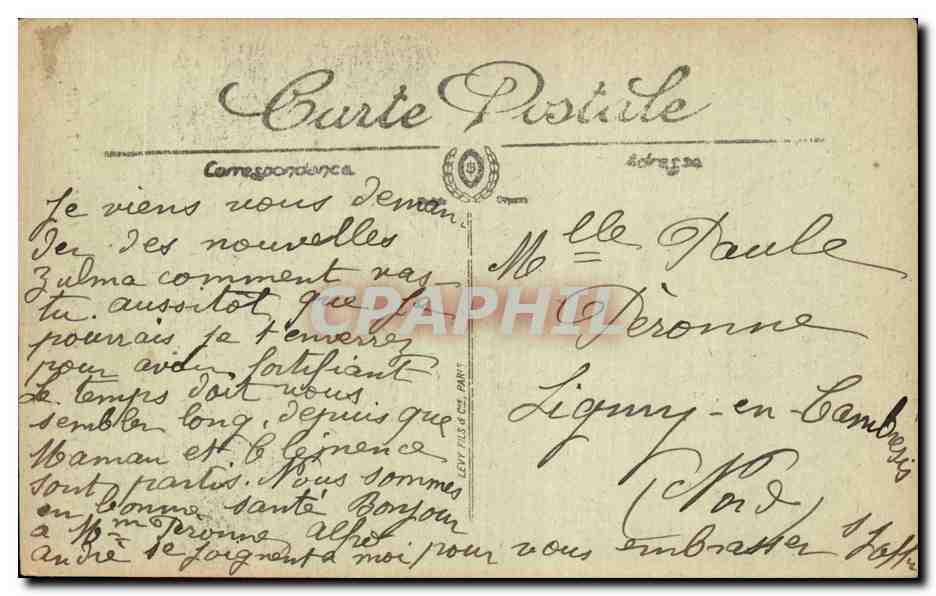 Carte Postale
Correspondance
Adresse
Je viens vous deman-
der des nouvelles
Zulma comment vas-
tu. aussitôt que je
pourrais je t'enverrez
pour avoir fortifiant
Le temps doit vous
sembler long, depuis que
Maman et Clémence
sont partis. Nous sommes
en bonne santé Bonjour
a Mme Peronne
andré se joignent a moi pour vous embrasser
Mlle Paule
Pèronne
Ligny-en-Cambrésis
(Nord)
LEVY FILS & Cie, PARIS
CPARHIL